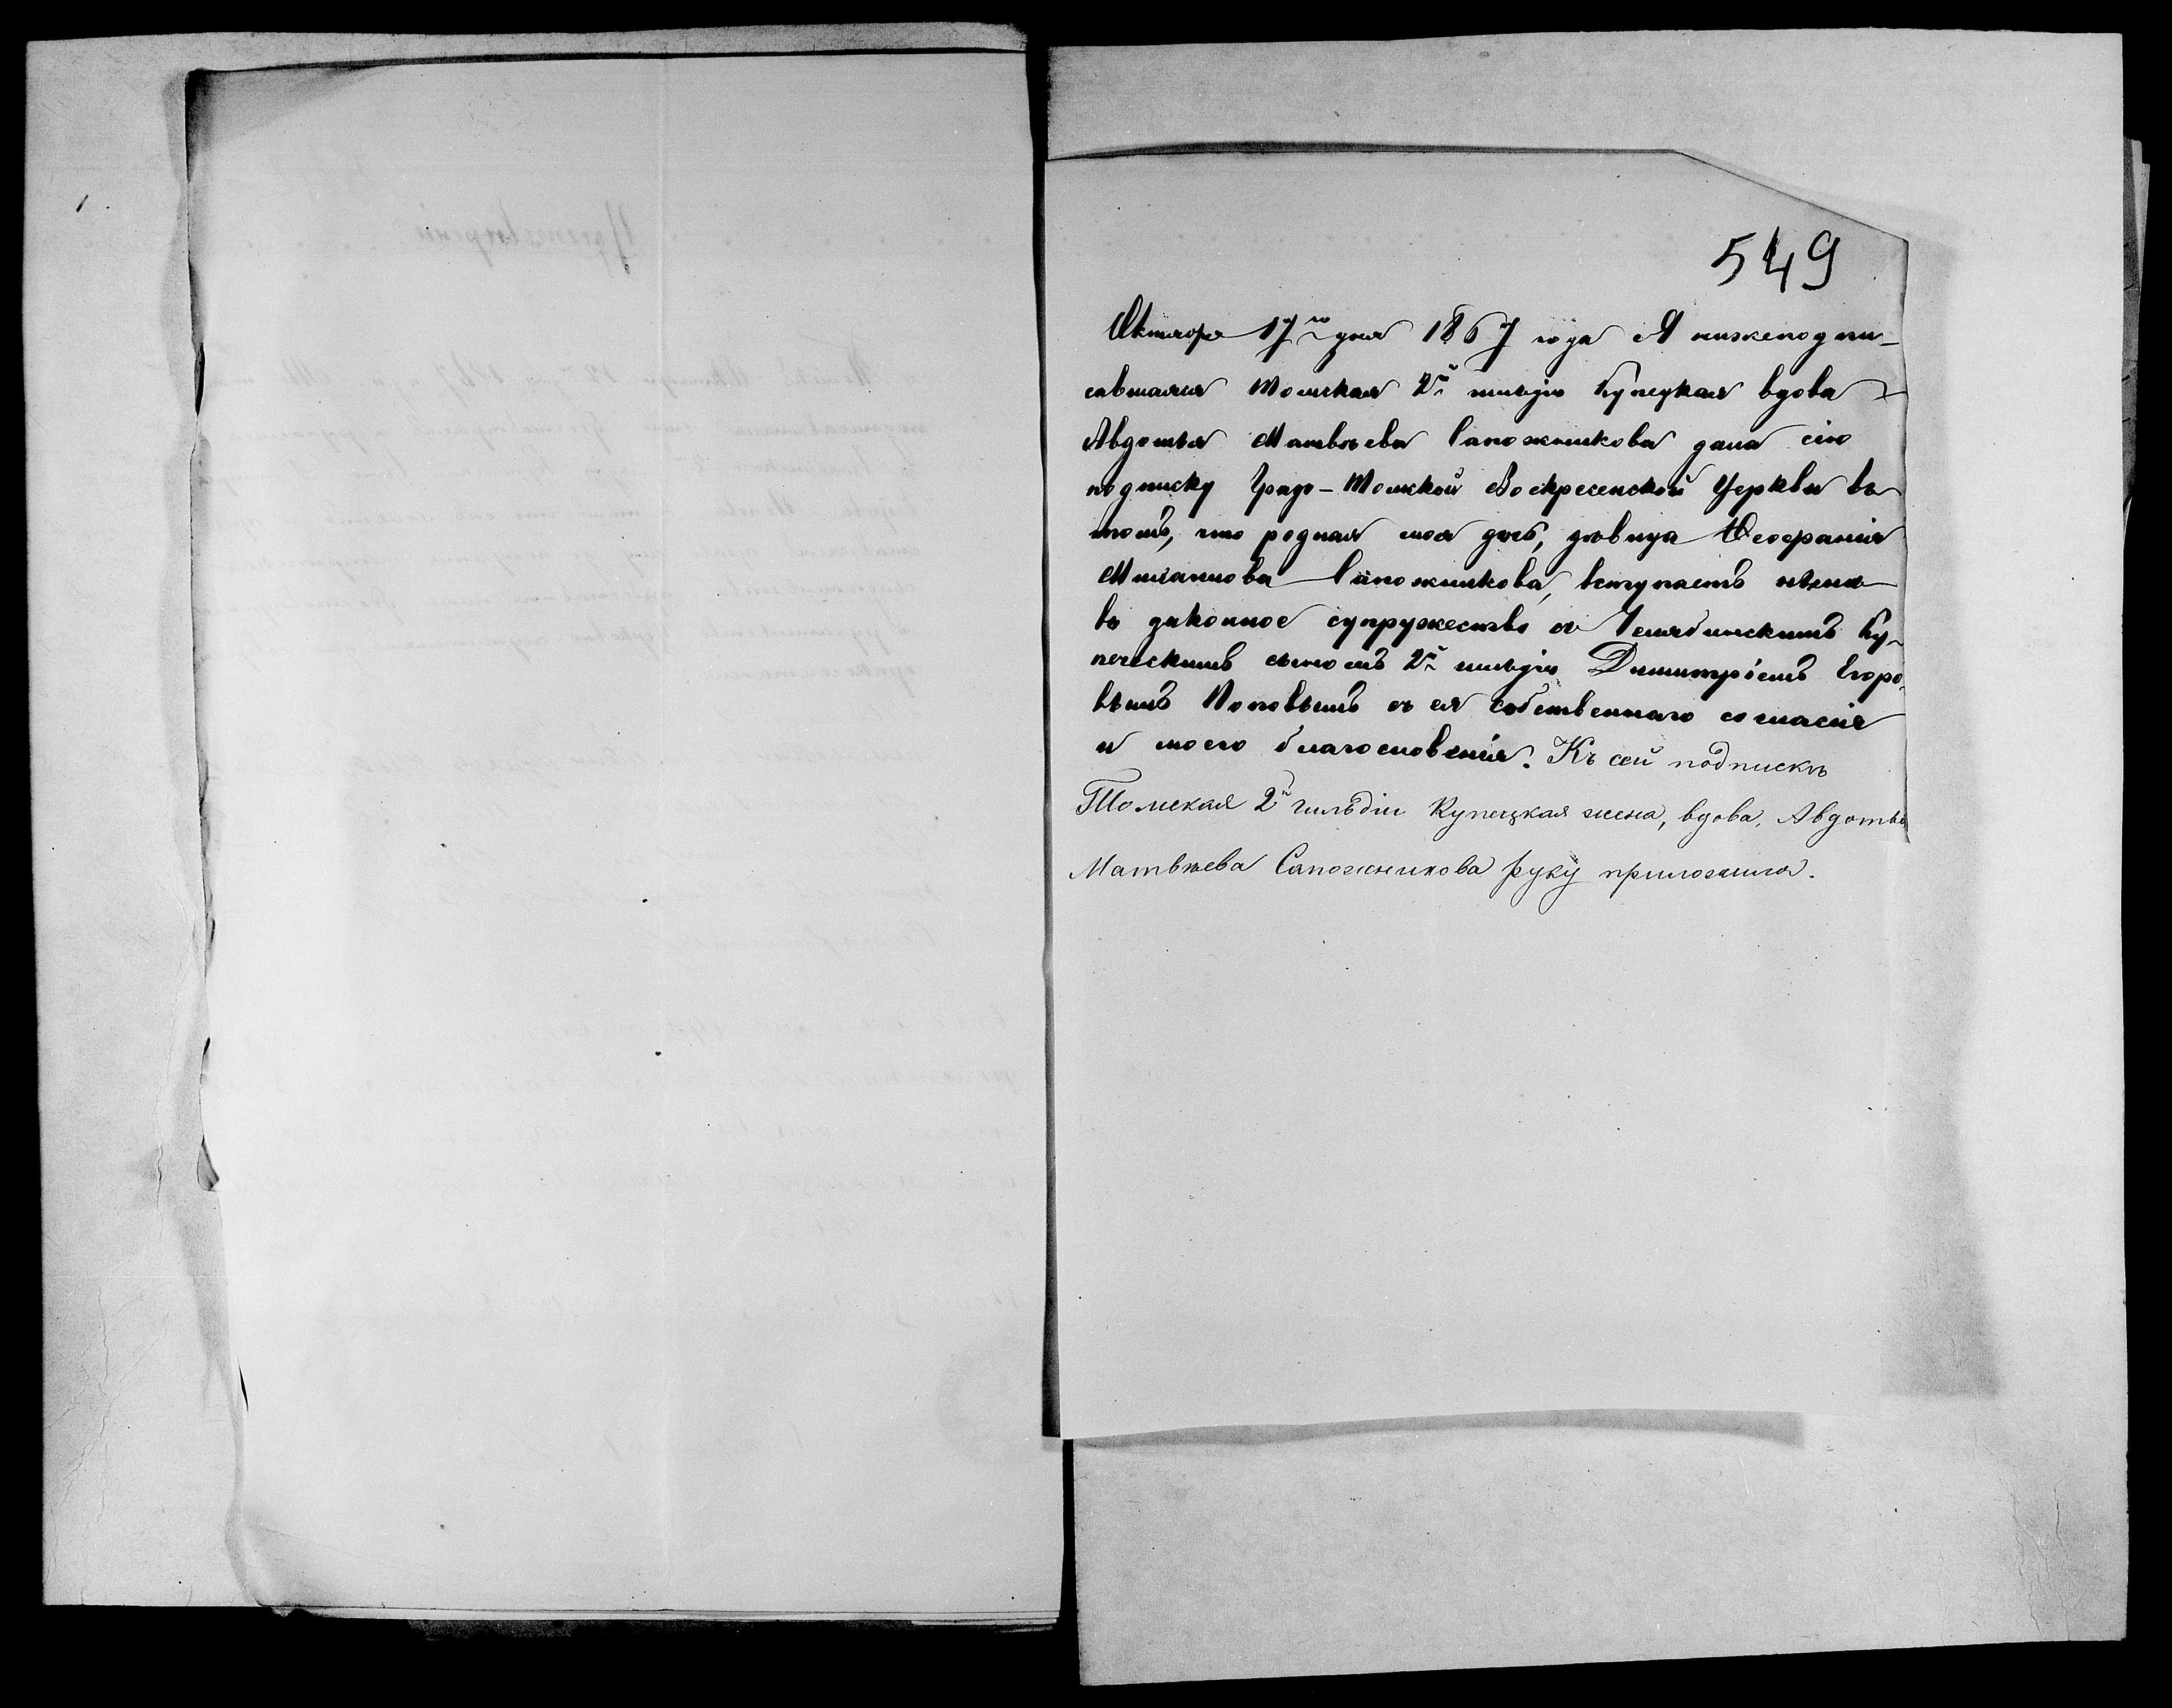 549
Октября 17го дня 1867 года Я нижеподпи-
савшаяся Томская 2й гильдіи Купецкая вдова
Авдотья Матвѣева Сапожникова дала сію
подписку Градо-Томской Воскресенской Церкви въ
томъ, что родная моя дочь, дѣвица Ѳеофанія
Михаилова Сапожникова, вступаетъ нынѣ
въ законное супружество съ Челябинскимъ Ку-
печескимъ сыномъ 2й гильдіи Димитріемъ Егоро-
вымъ Поповымъ съ ея собственнаго согласія
и моего благословенія. Къ сей подпискѣ
Томская 2й гильдіи Купецкая жена, вдова, Авдотья
Матвѣева Сапожникова руку приложила.